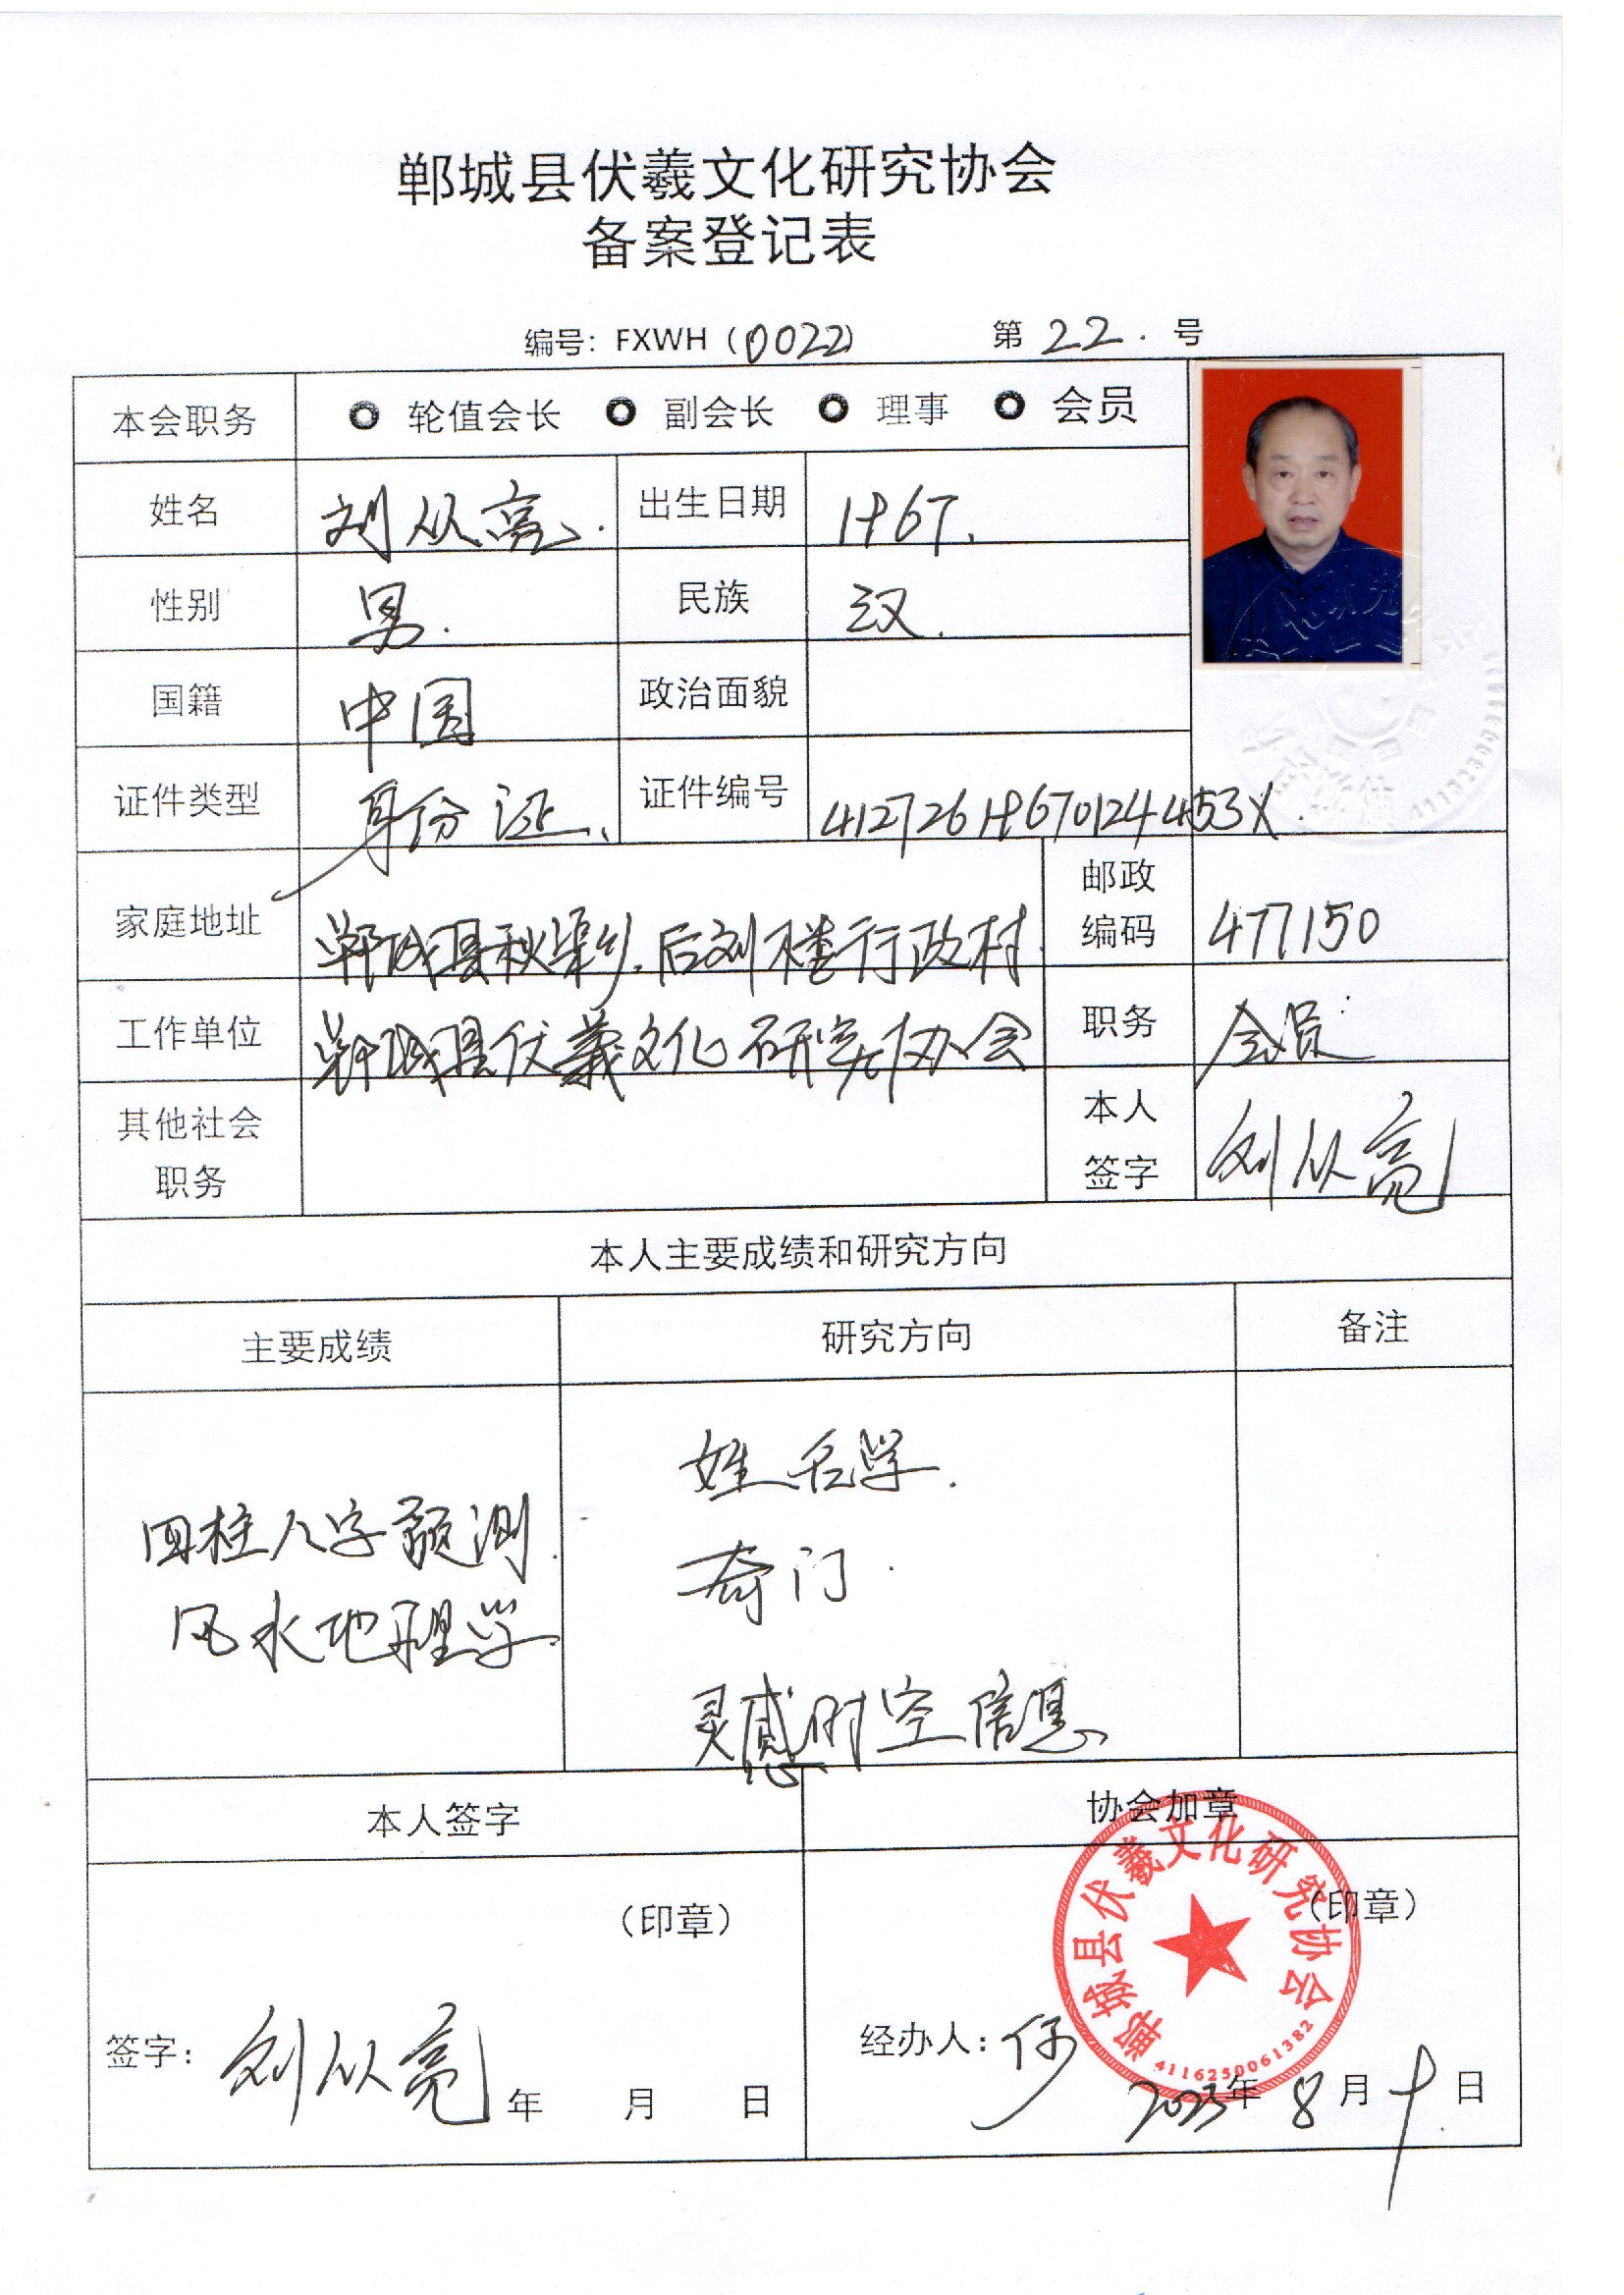 郸城县伏羲文化研究协会
备案登记表
编号：FXWH（0022） 第22.号
本会职务 轮值会长 副会长 理事 会员
姓名 刘从亮. 出生日期 1967.
性别 男. 民族 汉.
国籍 中国 政治面貌
证件类型 身份证、 证件编号 41272619670124453X.
家庭地址 郸城县秋渠乡.后刘楼行政村. 邮政编码 477150
工作单位 郸城县伏羲文化研究协会 职务 会员
其他社会职务 本人签字 刘从亮
本人主要成绩和研究方向
主要成绩 研究方向 备注
四柱八字预测.
风水地理学.
姓名学.
奇门.
灵感时空信息
本人签字 协会加章
（印章） （印章）
签字：刘从亮 年 月 日
经办人：
2023年8月 日
郸城县伏羲文化研究协会
4116250061382